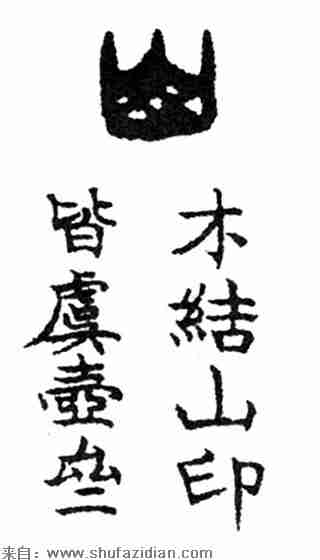 山
木結山印
皆虞壺
来自：www.shufazidian.com